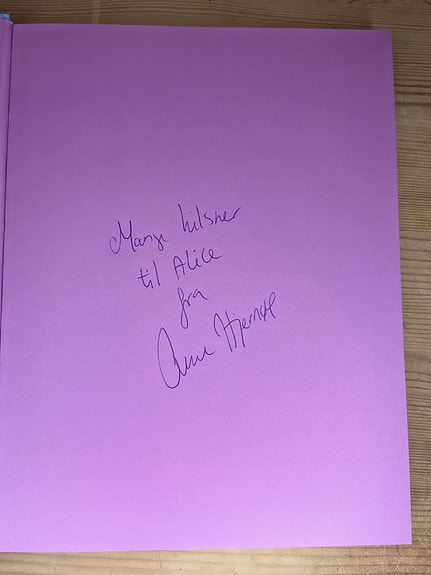 Mange hilsner
til Alice
fra
Anne Hjernøe